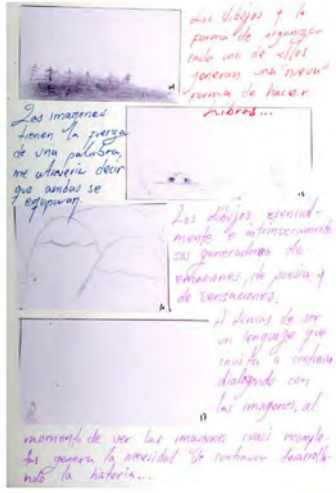 Los dibujos y la
forma de organizar
cada uno de ellos
generan una "nueva"
forma de hacer
Libros...
Las imagenes
tienen la fuerza
de una palabra,
me atrevería decir
que ambas se
equiparan.
Los dibujos, esencial-
mente e intrínsecamente
son generadores de
emociones, de poesía y
de sensaciones.
A demás de ser
un lenguaje que
invita a continuar
dialogando con
las imagenes, al
momento de ver las imagenes casi incomple-
tas genera la necesidad de continuar desarro-
llando la historia...
17